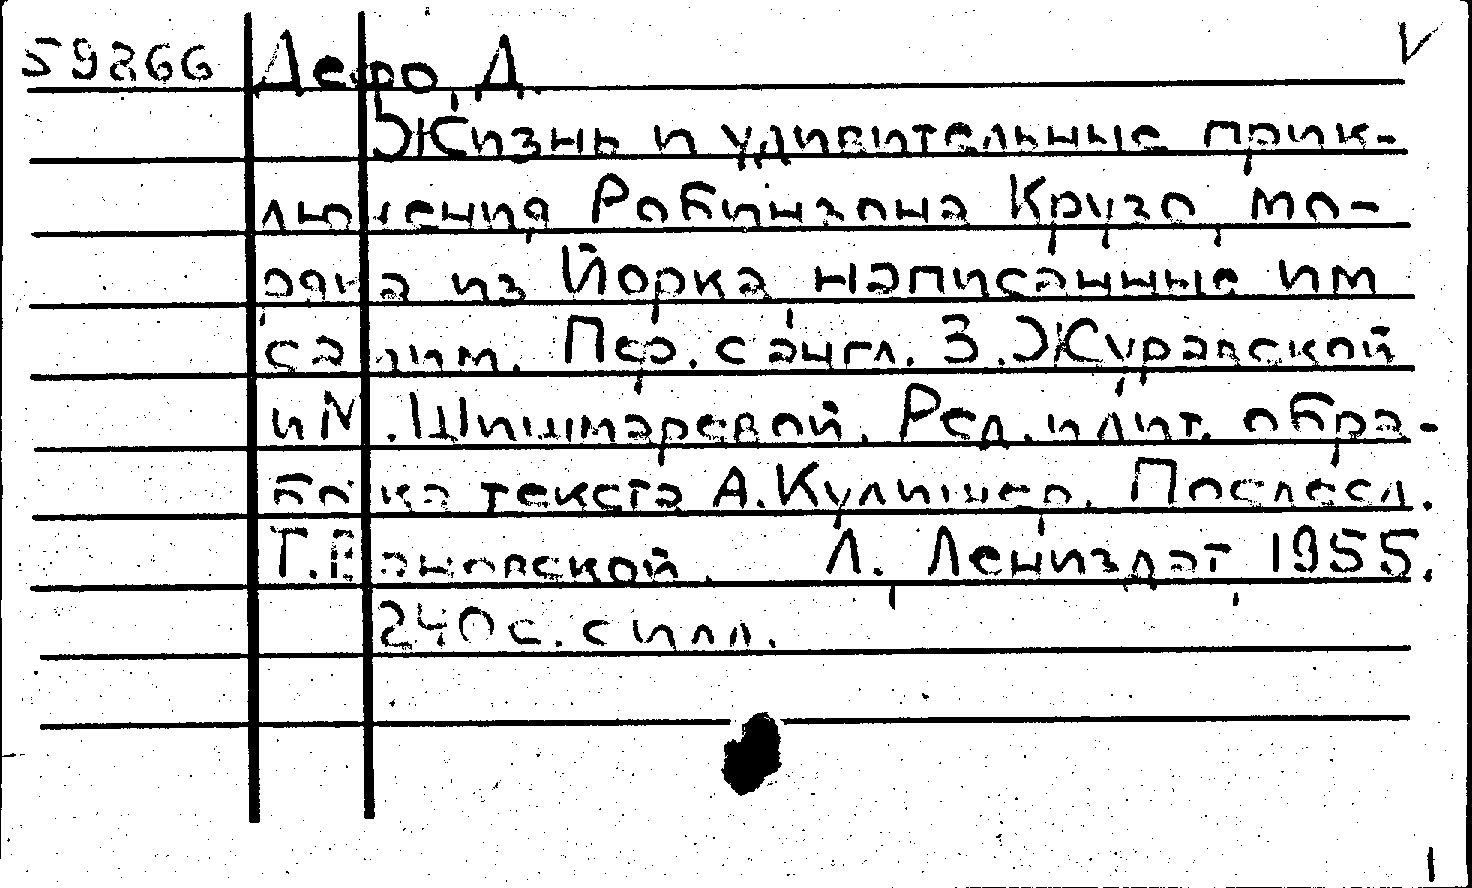 59866 Дефо, Д. V
Жизнь и удивительные прик-
лючения Робинзона Крузо, мо-
ряка из Йорка, написанные им
самим. Пер. с англ. З. Журавской
и М. Шишмаревой. Ред. и лит. обра-
ботка текста А. Кулишер. Послесл.
Т. Вановской. Л. Лениздат, 1955.
240 с. с илл.
1